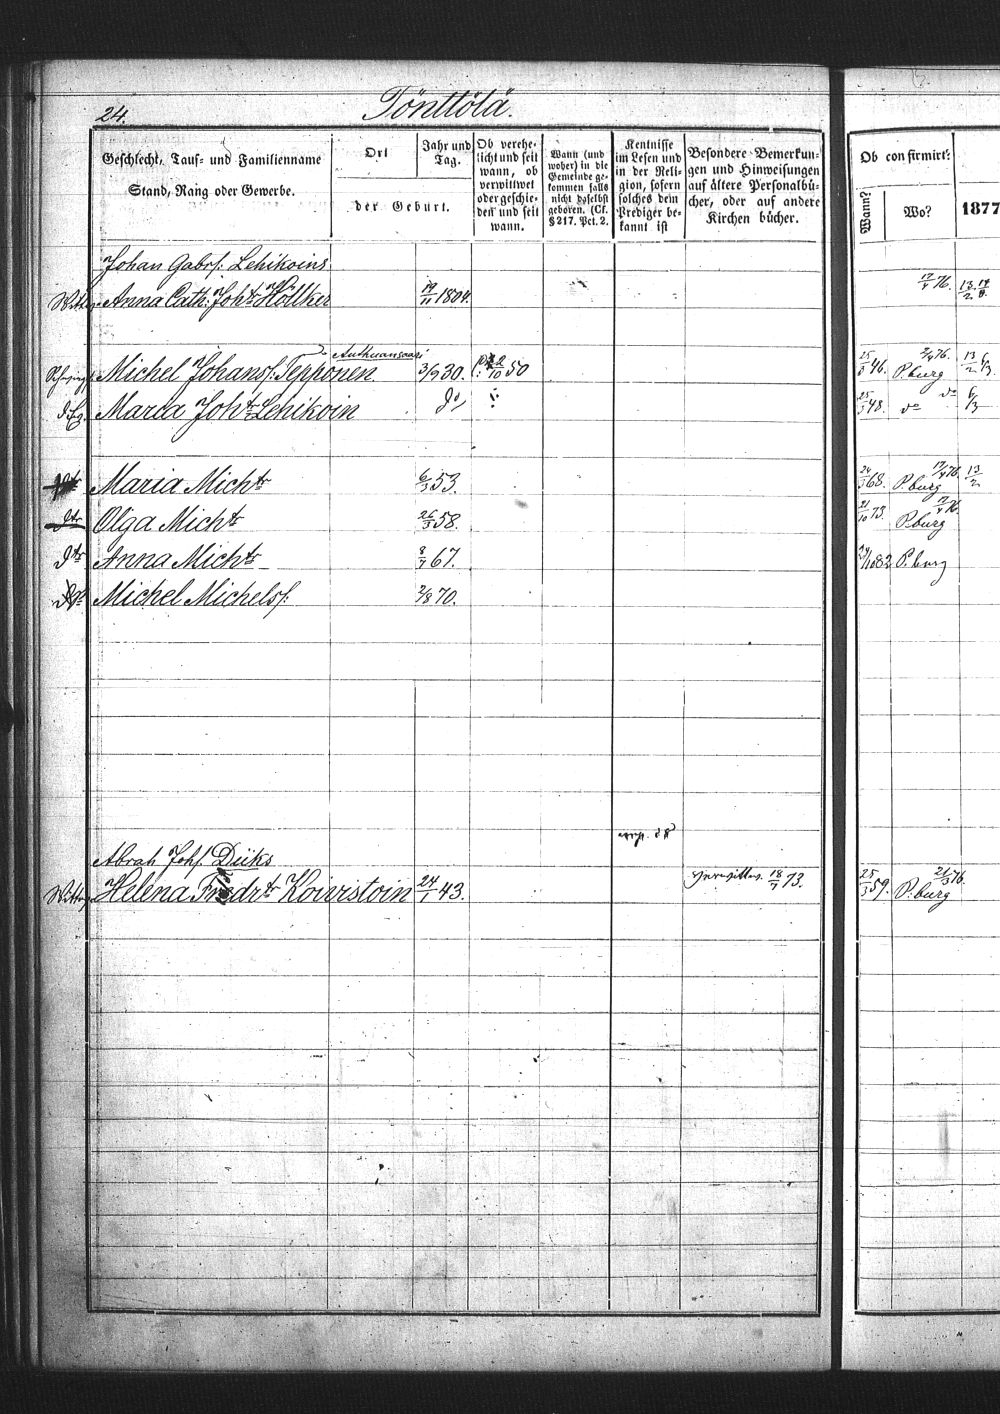 24.
Tönttölä.
Geschlecht, Tauf- und Familienname
Stand, Rang oder Gewerbe.
Ort
der Geburt.
Jahr und Tag.
Ob verehelicht und seit wann, ob verwittwet oder geschieden und seit wann.
Wann (und woher) in die Gemeinde gekommen falls nicht daselbst geboren. (Cf. § 217. Pct. 2.
Kentnisse im Lesen und in der Religion, sofern solches dem Prediger bekannt ist
Besondere Bemerkungen und Hinweisungen auf ältere Personalbücher, oder auf andere Kirchen bücher.
Ob confirmirt:
Wann?
Wo?
1877
Johan Gabrs: Lehikoins
Anna Cath: Joh: tr Höltker 19/11 1804. 17/4 76. 13/2
Michel Johans: Tepponen. 3/9 30. 2/10 50 25/3 46. P.burg 13/2 6/3
Maria Joh: tr Lehikoin do 25/3 48. do do 6/3
Maria Mich: tr 6/3 53. 24/3 68. P.burg 17/4 76. 13/2
Olga Mich: tr 26/3 58. 21/10 73. P.burg 17/4 76.
dtr Anna Mich: tr 8/4 67. 1882 P.burg
Michel Michels: 2/8 70.
Abrah Johs: Düks
Helena Fredr: tr Koivistoin 24/1 43. 18/4 73. 25/3 59. P.burg 21/3 76.